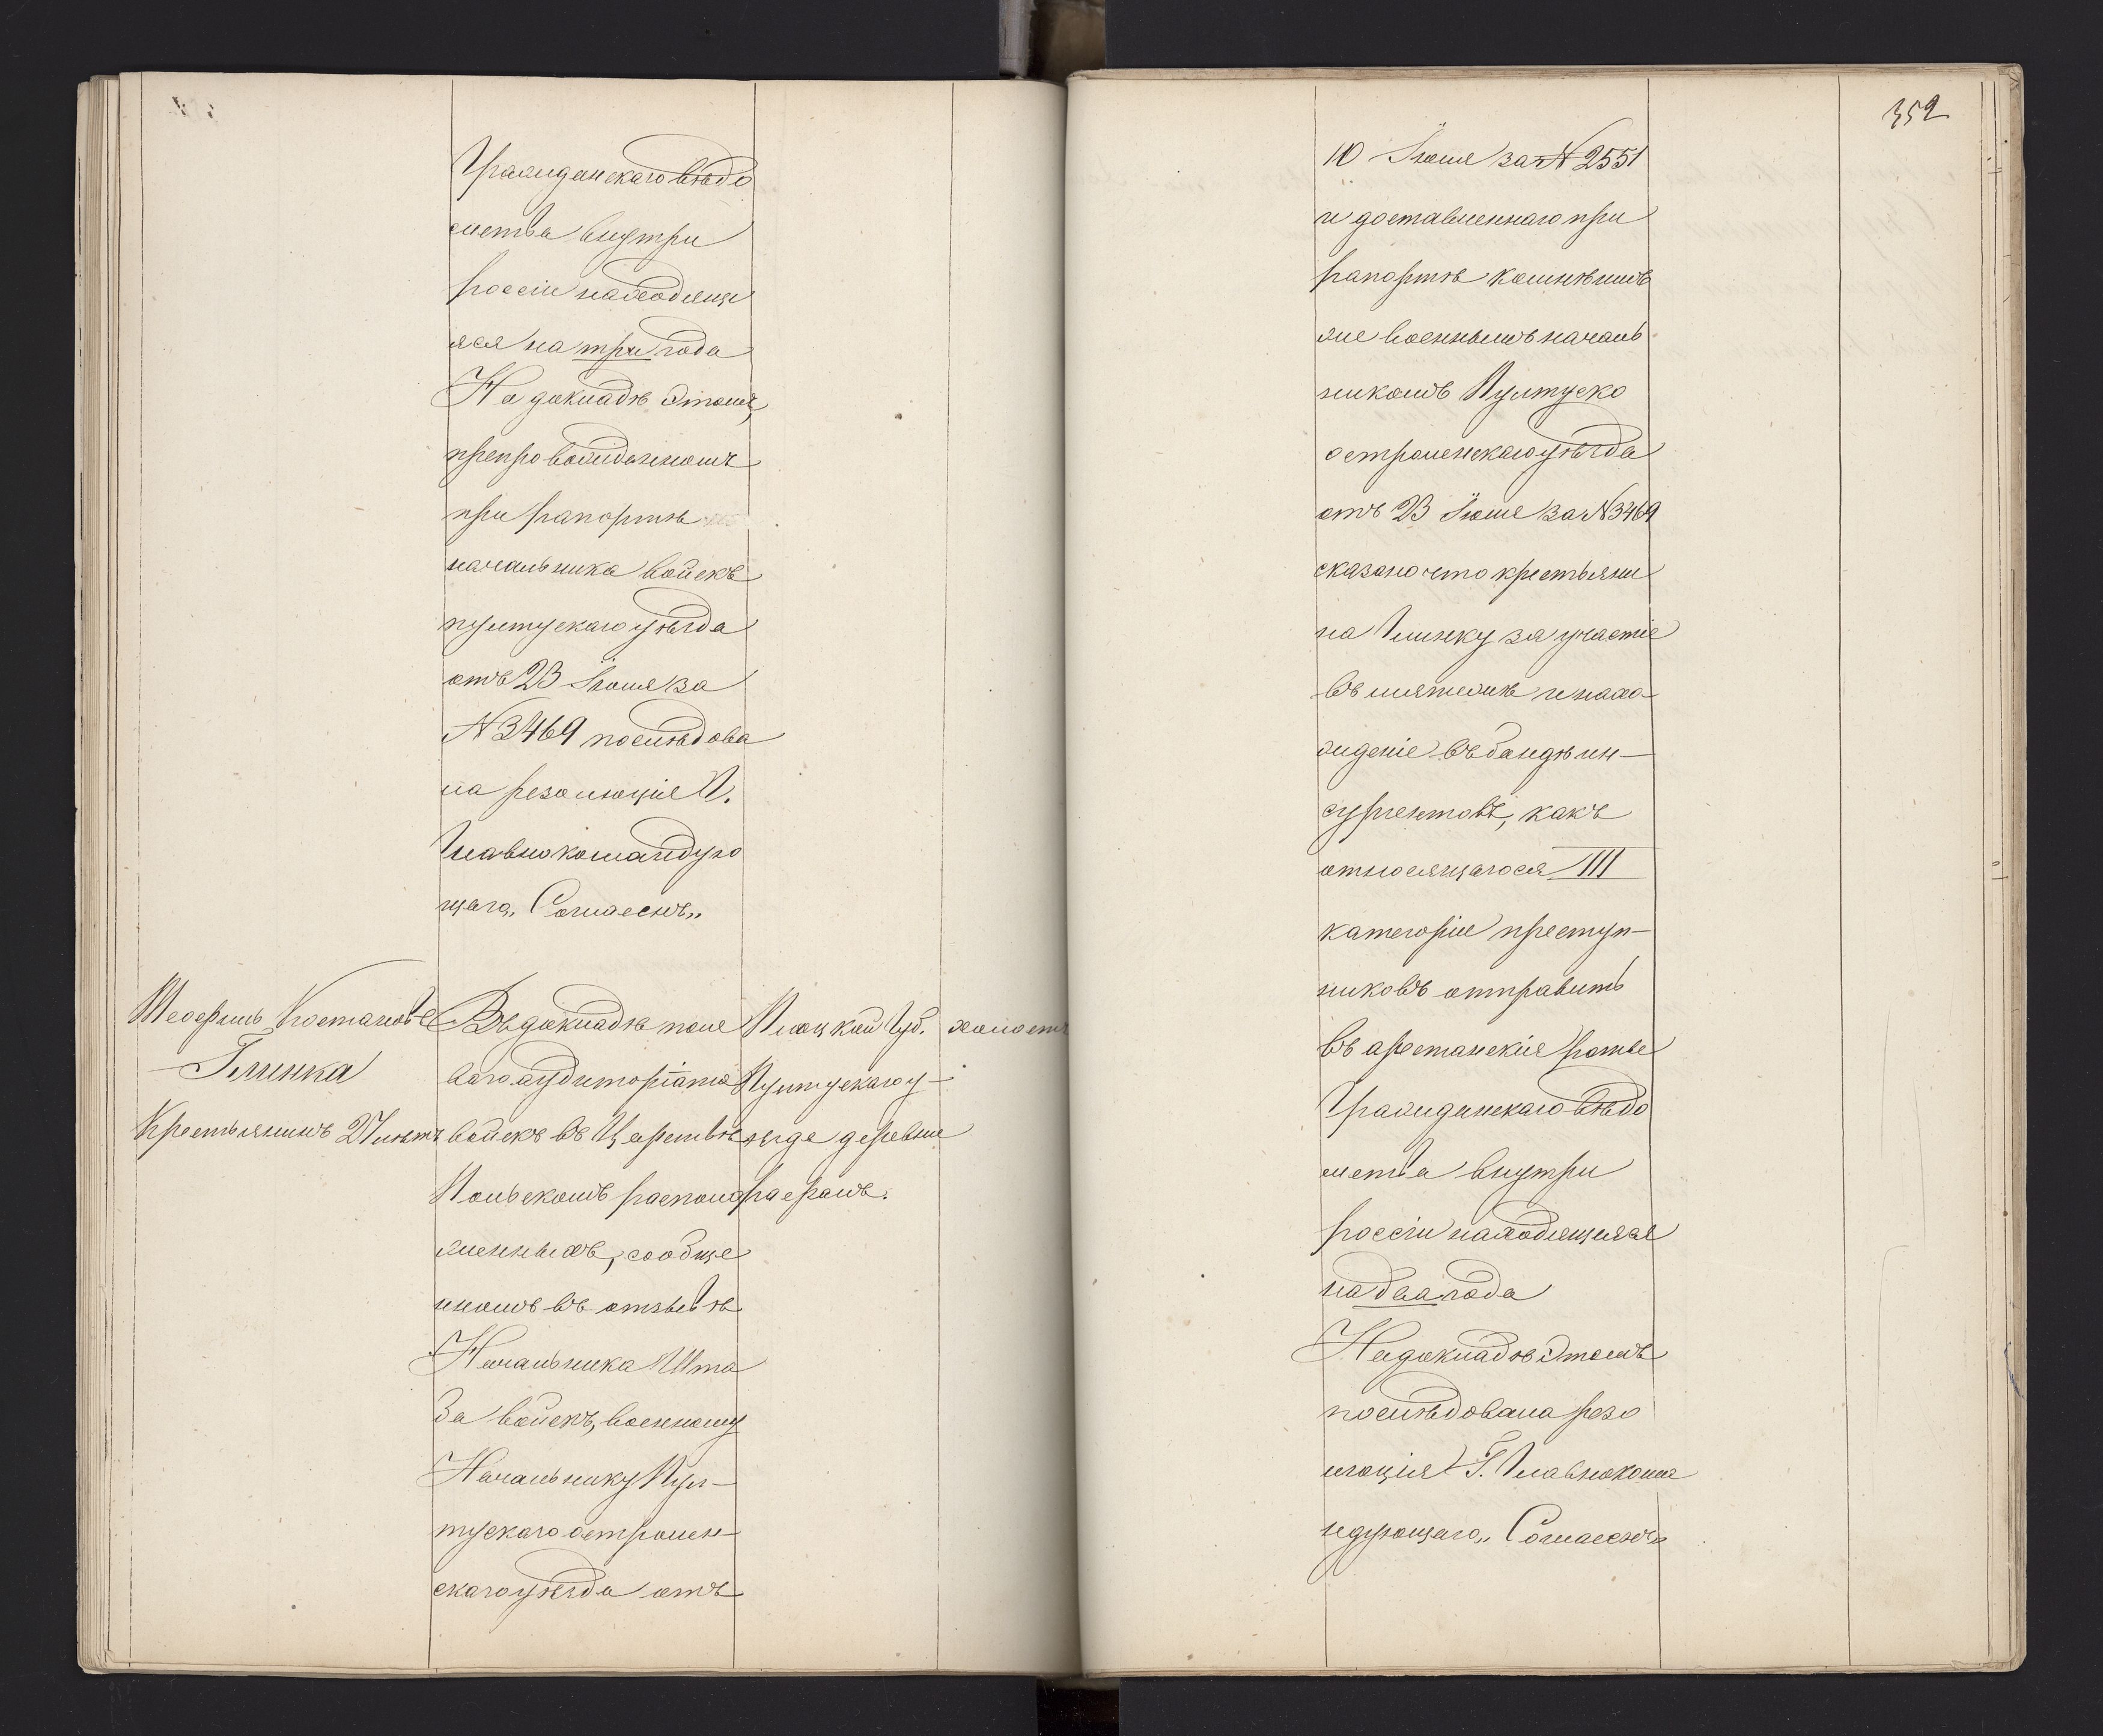 Гражданскаго вѣдо
мства внутри
россіи находящі
яся на три года
На докладѣ этомъ,
препровожденномъ
при рапортѣ
начальника войскъ
пултускаго уѣзда
отъ 23 Іюля за
№ 3469 послѣдова
ла резолюція Г.
Главнокомандую
щаго „Согласенъ„
Теофиль Костановъ
Глинка
Крестьянинъ 27 лѣтъ
Въ докладѣ поле
ваго аудиторіата
войскъ въ Царствѣ
Польскомъ располо
женныхъ, сообще
нномъ въ отзывѣ
Начальника Шта
ба войскъ, военному
Начальнику Пул-
тускаго остролен-
скаго уѣзда отъ
Плоцкой Губ.
Пултускаго у-
ѣзда деревни
холостъ
352
10 Іюля за № 2551
и доставленнаго при
рапортѣ
военнымъ началь
никомъ Пултуско
остроленскаго уѣзда
отъ 23 Іюля за № 3469
сказано что крестьяни
на Глинку за участіе
въ мятежѣ и нахо-
жденіе въ бандѣ ин-
сургентовъ, какъ
относящагося III
категоріи преступ-
никовъ отправить
въ арестанскія роты
Гражданскаго вѣдо
мства внутри
россіи находящіяся
на два года
На докладѣ этомъ
послѣдовала резо
люція Г. Главнокома
ндующаго „Согласенъ„